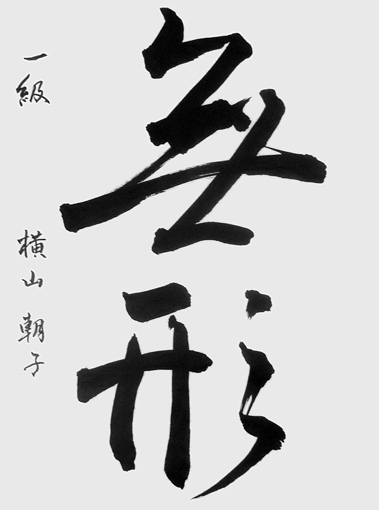 無形
一級 横山朝子